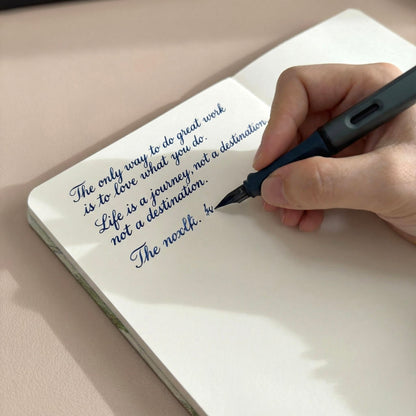 The only way to do great work
is to love what you do.
Life is a journey, not a destination
not a destination.
The